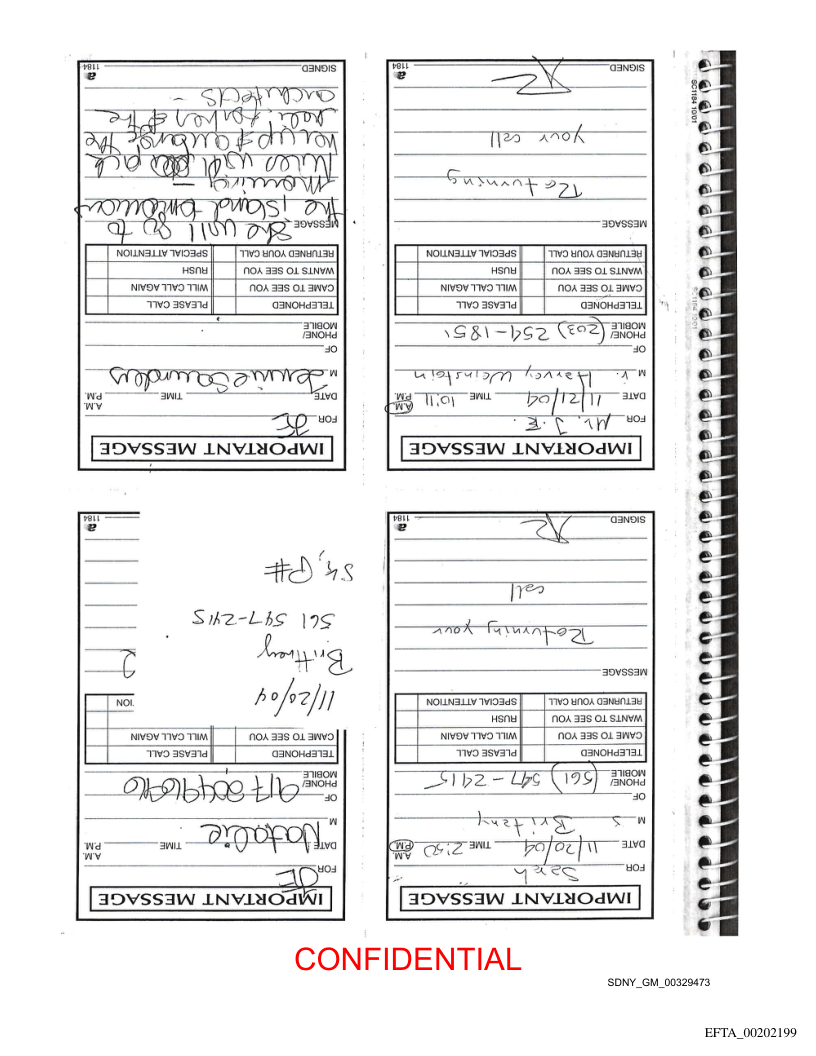 IMPORTANT MESSAGE
FOR Sarah
A.M.
DATE 11/20/04 TIME 2:50 P.M.
M s Britany
OF
PHONE/
MOBILE (561) 547-2415
TELEPHONED PLEASE CALL
CAME TO SEE YOU WILL CALL AGAIN
WANTS TO SEE YOU RUSH
RETURNED YOUR CALL SPECIAL ATTENTION
MESSAGE
Returning your
call
SIGNED 1184
IMPORTANT MESSAGE
FOR JE
A.M.
DATE TIME P.M.
M Natalie
OF
PHONE/
MOBILE
TELEPHONED PLEASE CALL
CAME TO SEE YOU WILL CALL AGAIN
ION
11/20/04
Brittney
561 547-2415
1184
IMPORTANT MESSAGE
FOR Mr. J.E.
A.M.
DATE 11/21/04 TIME 10:11 P.M.
M r. Harvey Weinstein
OF
PHONE/
MOBILE (203) 254-1851
TELEPHONED PLEASE CALL
CAME TO SEE YOU WILL CALL AGAIN
WANTS TO SEE YOU RUSH
RETURNED YOUR CALL SPECIAL ATTENTION
MESSAGE
Returning
your call
SIGNED 1184
IMPORTANT MESSAGE
FOR JE
A.M.
DATE TIME P.M.
M Saunders
OF
PHONE/
MOBILE
TELEPHONED PLEASE CALL
CAME TO SEE YOU WILL CALL AGAIN
WANTS TO SEE YOU RUSH
RETURNED YOUR CALL SPECIAL ATTENTION
MESSAGE She will go to
the island tomorrow
morning –
Miles will pick
her up & arrange the
heli: for her & the
architects –
SIGNED 1184
SC1184 10/01
CONFIDENTIAL
SDNY_GM_00329473
EFTA_00202199